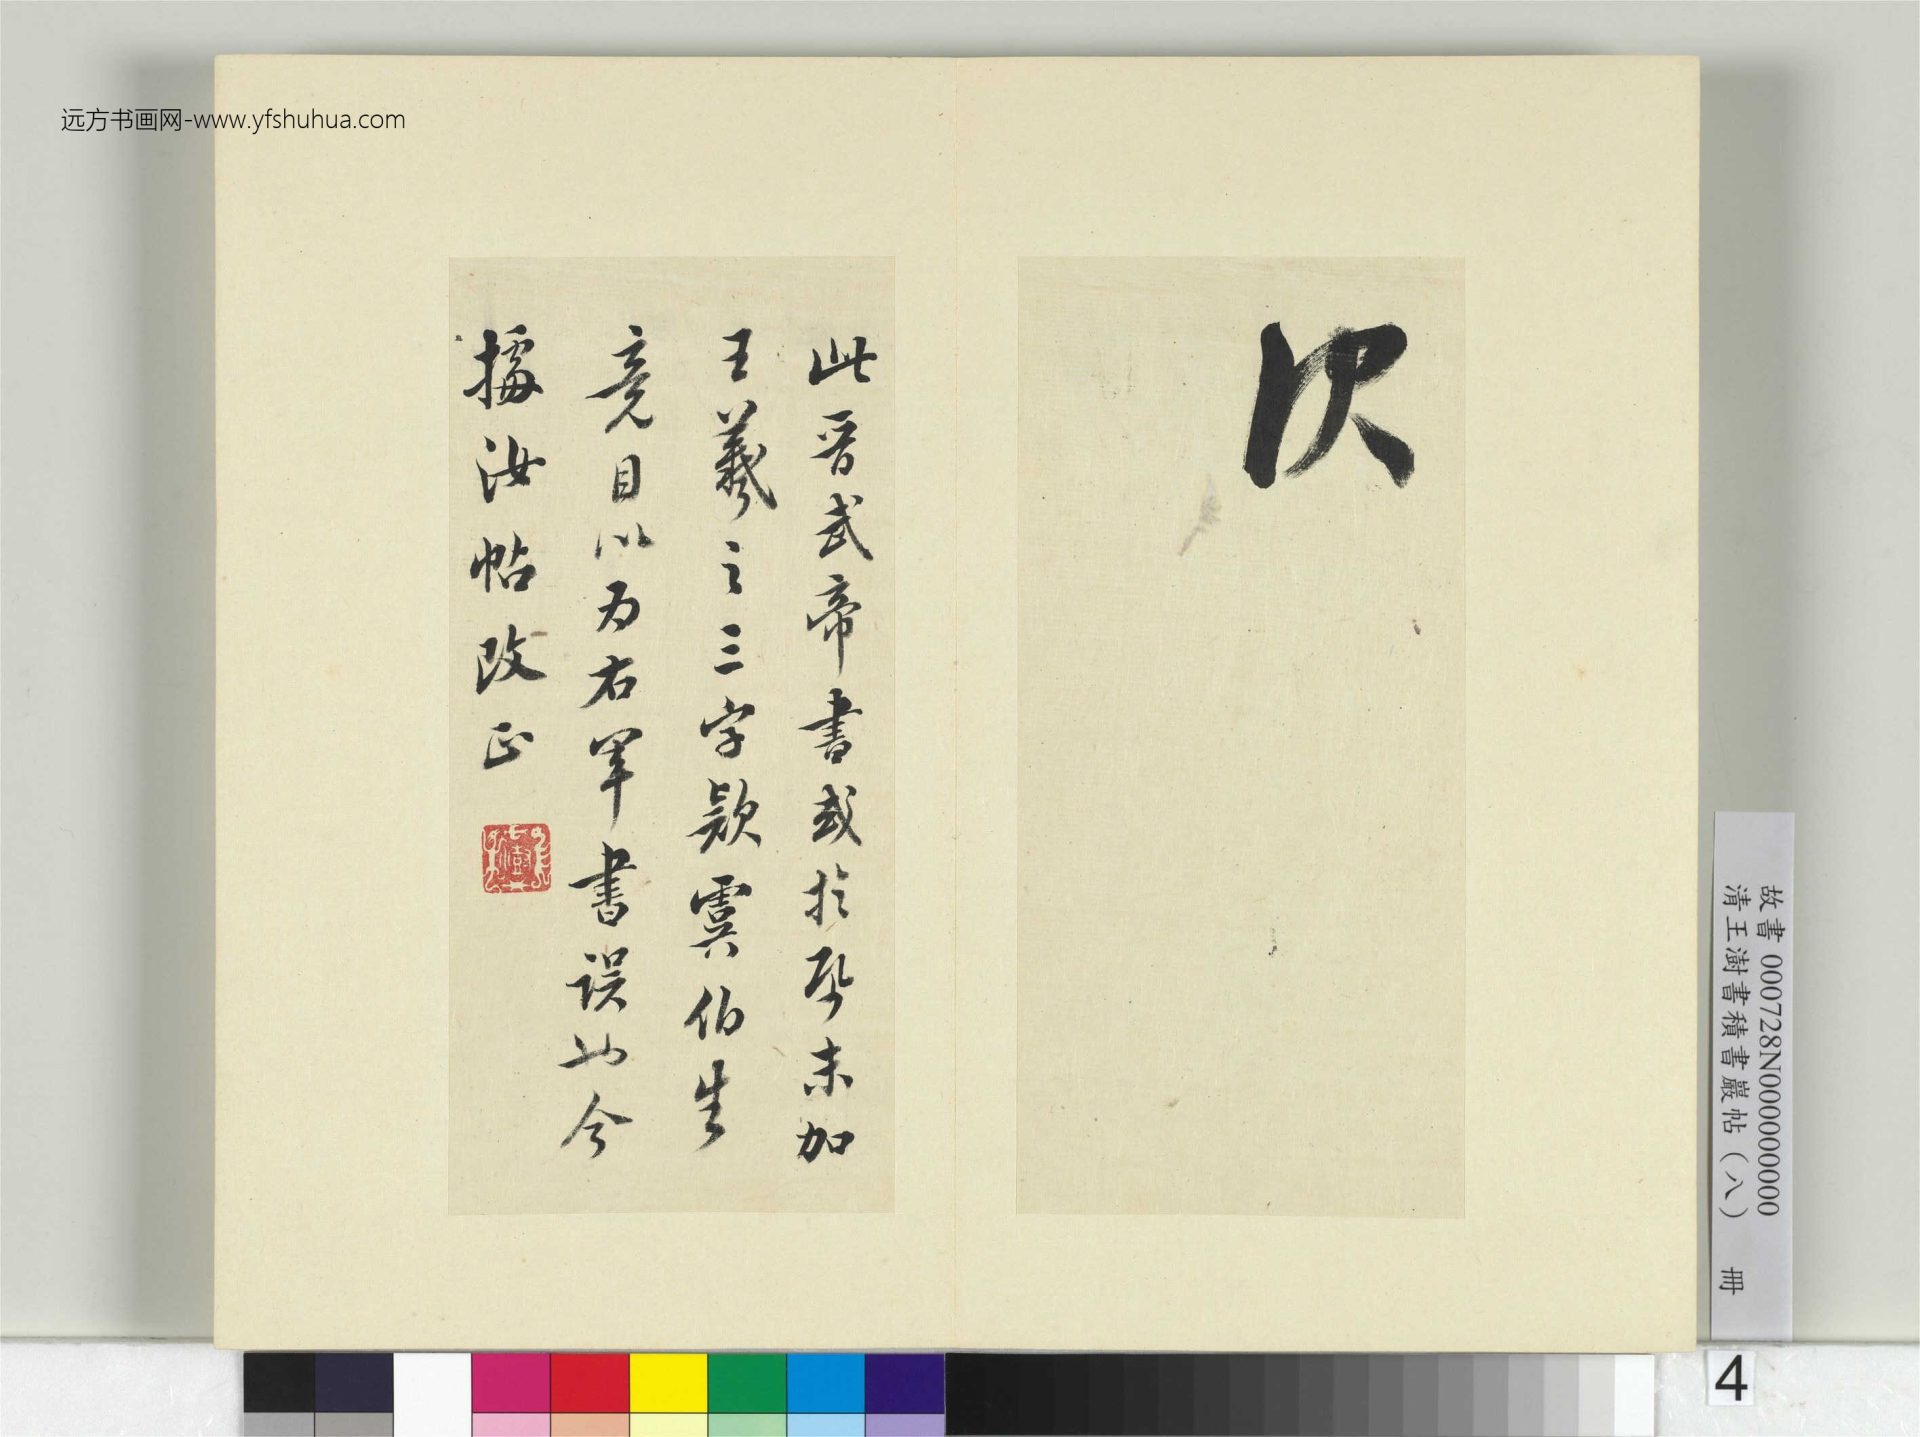 远方书画网-www.yfshuhua.com
決
此晋武帝書或於末加
王羲之三字款虞伯生
竟目以为右軍書误也今
據汝帖改正
故書 000728N000000000
清王澍書積書巖帖(八) 冊
4